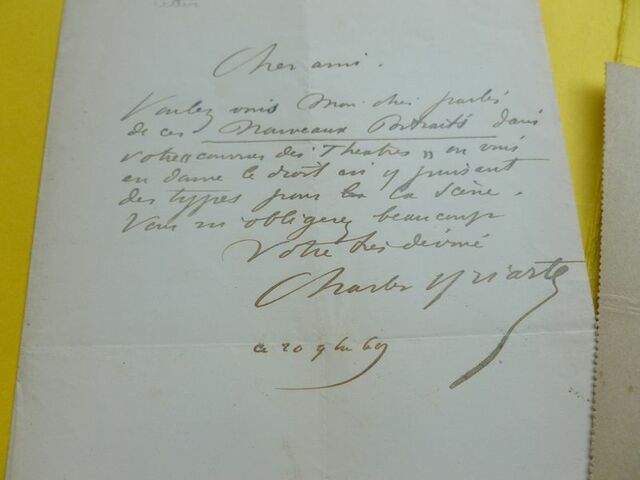 Cher ami.
Voulez vous mon cher parler
de ces Nouveaux Portraits dans
votre « courrier des Théâtres » on vous
en donne le droit en y puisant
des types pour la scène.
Vous m'obligerez beaucoup
Votre très dévoué
Charles Yriarte
ce 20 9bre 69